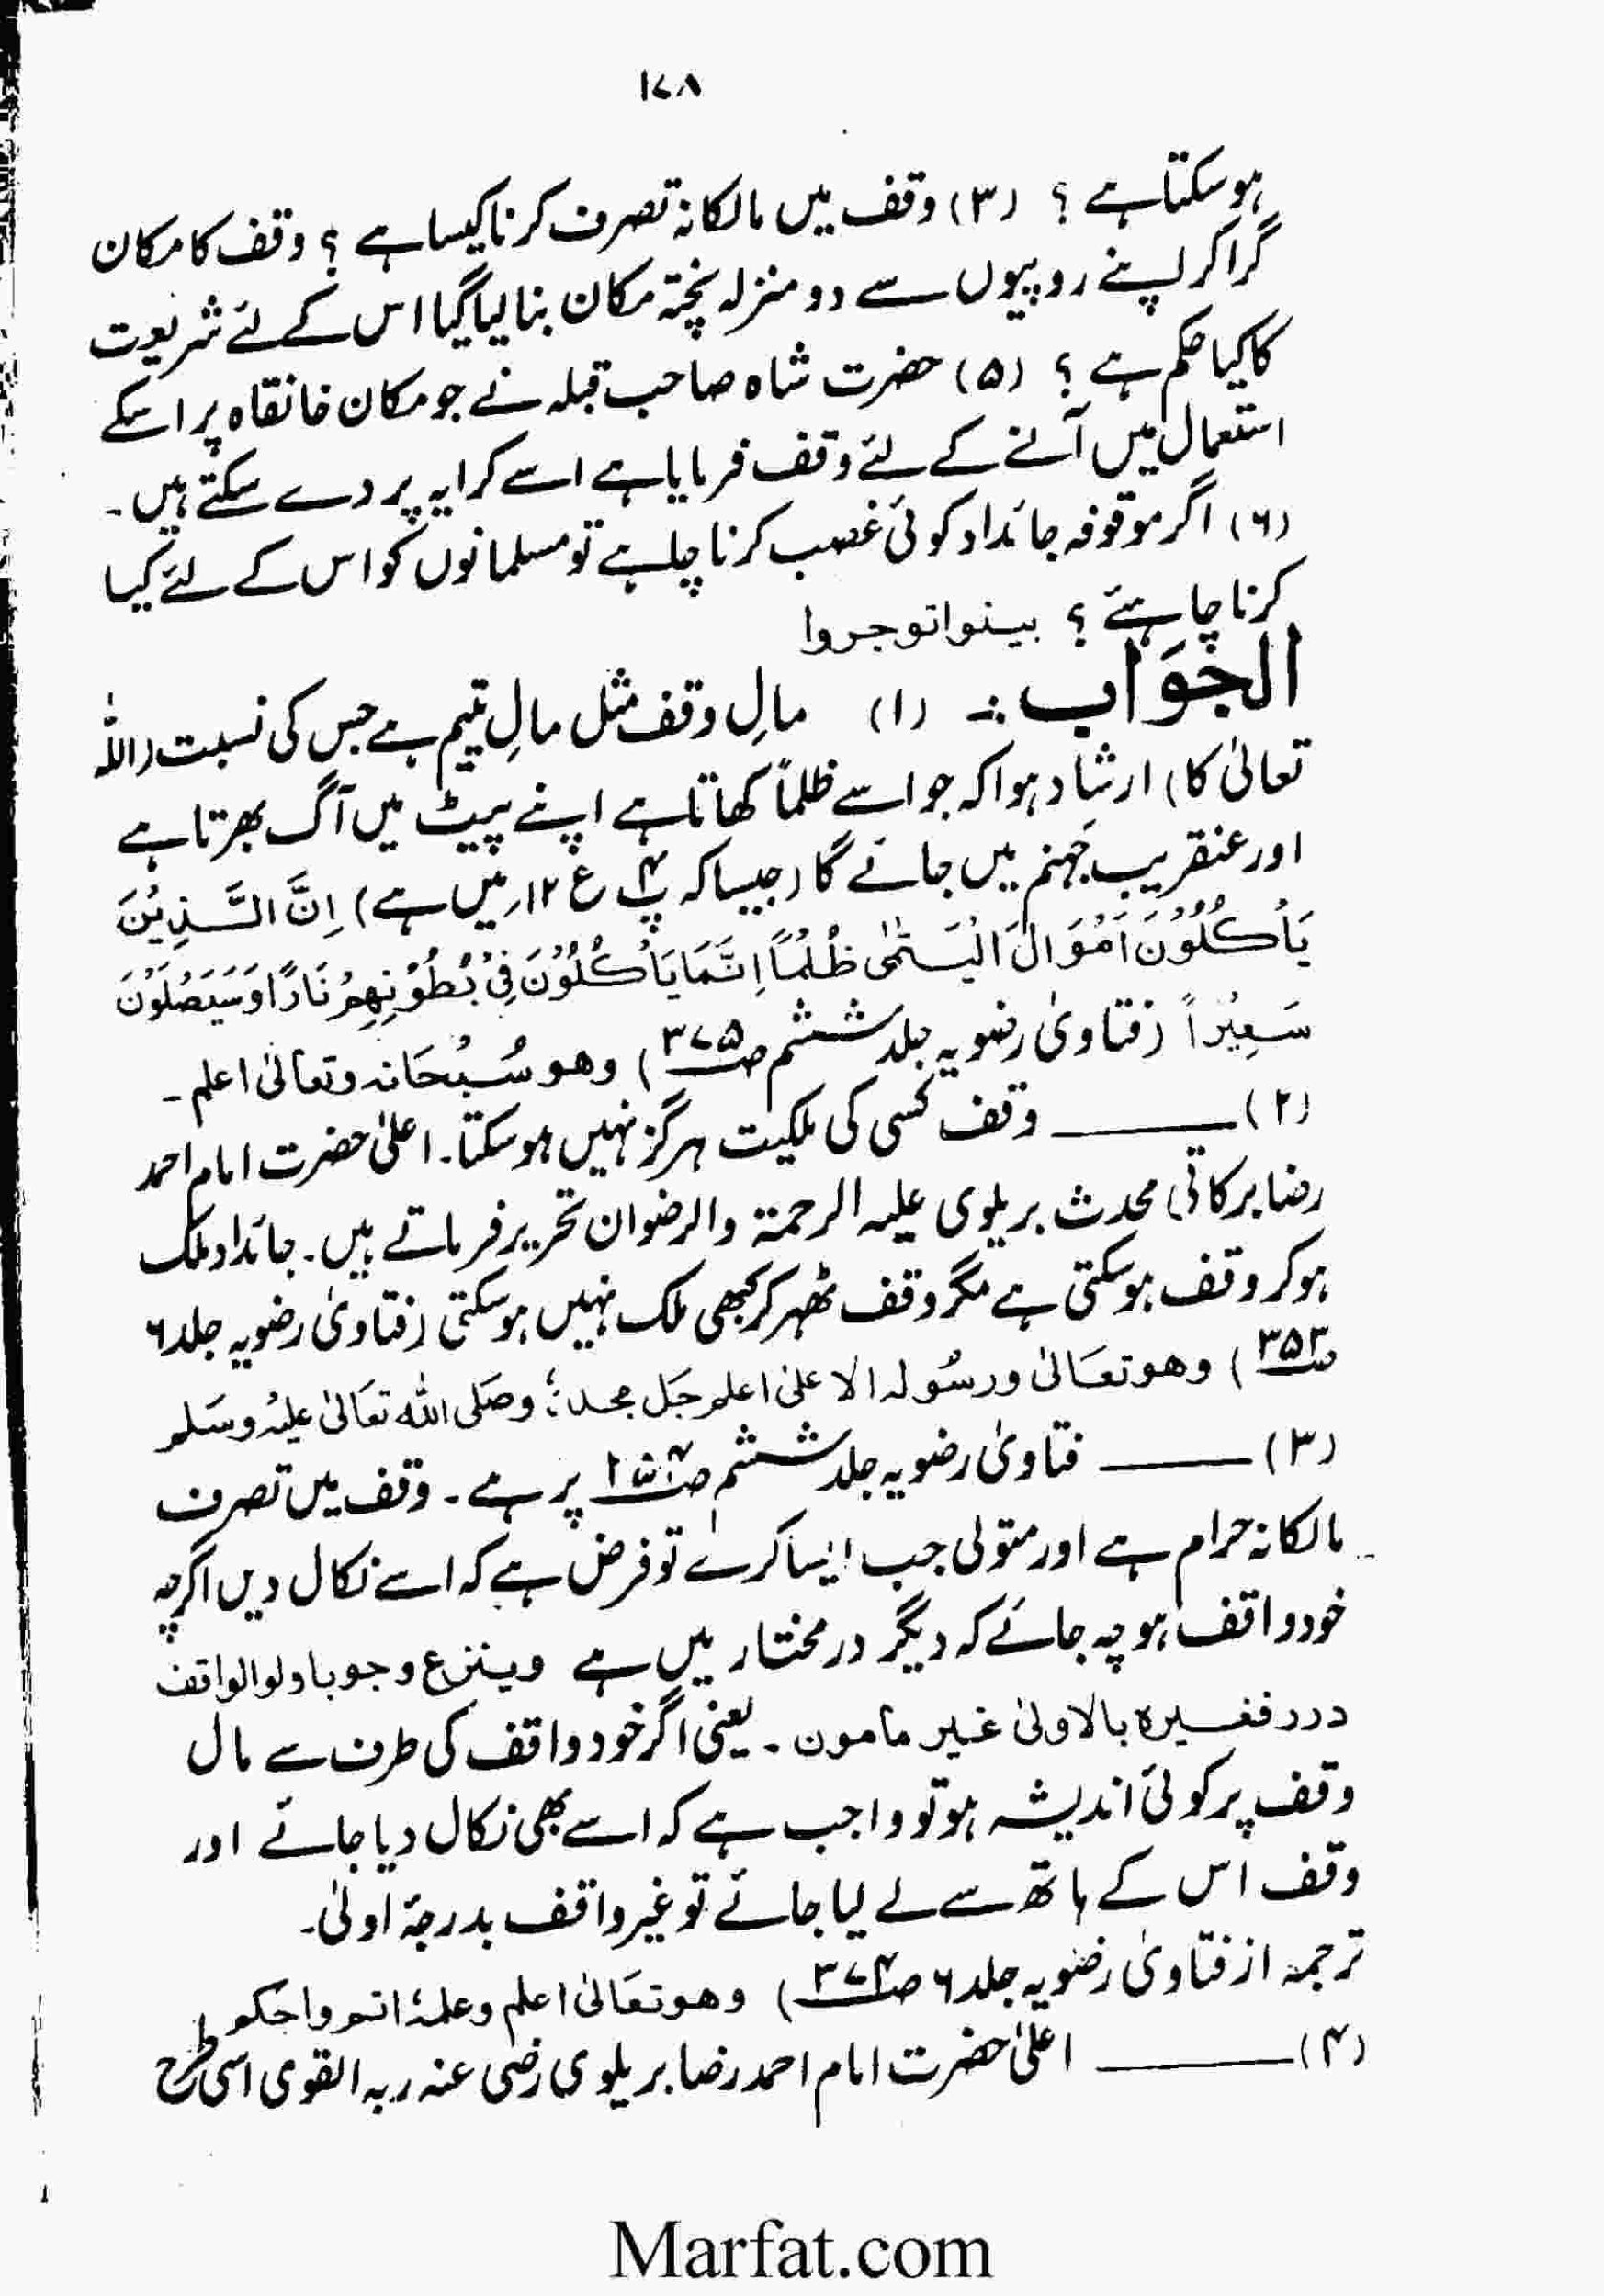 ۱۷۸
ہوسکتا ہے ؟ (۳) وقف میں مالکانہ تصرف کرنا کیسا ہے ؟ وقف کا مکان
گرا کر اپنے روپیوں سے دو منزلہ پختہ مکان بنالیا گیا اس کے لئے شریعت
کا کیا حکم ہے ؟ (۵) حضرت شاہ صاحب قبلہ نے جو مکان خانقاہ پر اسکے
استعمال میں آنے کے لئے وقف فرمایا ہے اسے کرایہ پر دے سکتے ہیں۔
(۶) اگر موقوفہ جائداد کوئی غصب کرنا چاہے تو مسلمانوں کو اس کے لئے کیا
کرنا چاہئے ؟ بینوا توجروا
الجَوَاب :- (۱) مالِ وقف مثل مالِ یتیم ہے جس کی نسبت (اللہ
تعالیٰ کا) ارشاد ہوا کہ جو اسے ظلماً کھاتا ہے اپنے پیٹ میں آگ بھرتا ہے
اور عنقریب جہنم میں جائے گا (جیسا کہ پ۴ ع ۱۲ میں ہے) اِنَّ الَّذِیْنَ
یَاْکُلُوْنَ اَمْوَالَ الْیَتٰمٰی ظُلْمًا اِنَّمَا یَاْکُلُوْنَ فِیْ بُطُوْنِهِمْ نَارًا وَسَیَصْلَوْنَ
سَعِیْرًا (فتاویٰ رضویہ جلد ششم ص۳۷۵) وھو سُبْحَانہ وتعالیٰ اعلم۔
(۲) ـــــــ وقف کسی کی ملکیت ہرگز نہیں ہوسکتا۔ اعلیٰ حضرت امام احمد
رضا برکاتی محدث بریلوی علیہ الرحمۃ والرضوان تحریر فرماتے ہیں۔ جائداد ملک
ہوکر وقف ہوسکتی ہے مگر وقف ٹھہر کر کبھی ملک نہیں ہوسکتی (فتاویٰ رضویہ جلد ۶
ص۳۵۳) وھو تعَالیٰ ورسُولہ الاعلیٰ اعلم جَل مجدہ؛ وصَلی اللہ تعَالیٰ علیہ وسَلم
(۳) ـــــــ فتاویٰ رضویہ جلد ششم ص پر ہے۔ وقف میں تصرف
مالکانہ حرام ہے اور متولی جب ایسا کرے تو فرض ہے کہ اسے نکال دیں اگرچہ
خود واقف ہو چہ جائے کہ دیگر در مختار میں ہے وینزع وجوبا ولوالواقف
درر فغیرہ بالاولیٰ غیر مامون۔ یعنی اگر خود واقف کی طرف سے مال
وقف پر کوئی اندیشہ ہو تو واجب ہے کہ اسے بھی نکال دیا جائے اور
وقف اس کے ہاتھ سے لے لیا جائے تو غیر واقف بدرجۂ اولیٰ۔
ترجمہ از فتاویٰ رضویہ جلد ۶ ص۳۷۴) وھو تعَالیٰ اعلم وعلمہٗ اتم واحکم
(۴) ـــــــ اعلیٰ حضرت امام احمد رضا بریلوی رضی عنہ ربہ القوی اسی طرح
Marfat.com